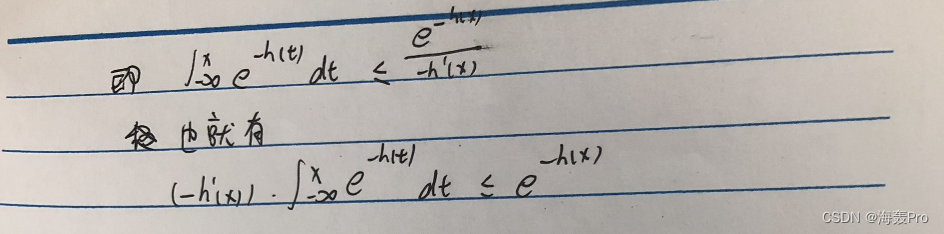 即 ∫_{-∞}^{x} e^{-h(t)} dt ≤ \frac{e^{-h(x)}}{-h'(x)}
也就有
(-h'(x)) · ∫_{-∞}^{x} e^{-h(t)} dt ≤ e^{-h(x)}
CSDN @海轰Pro